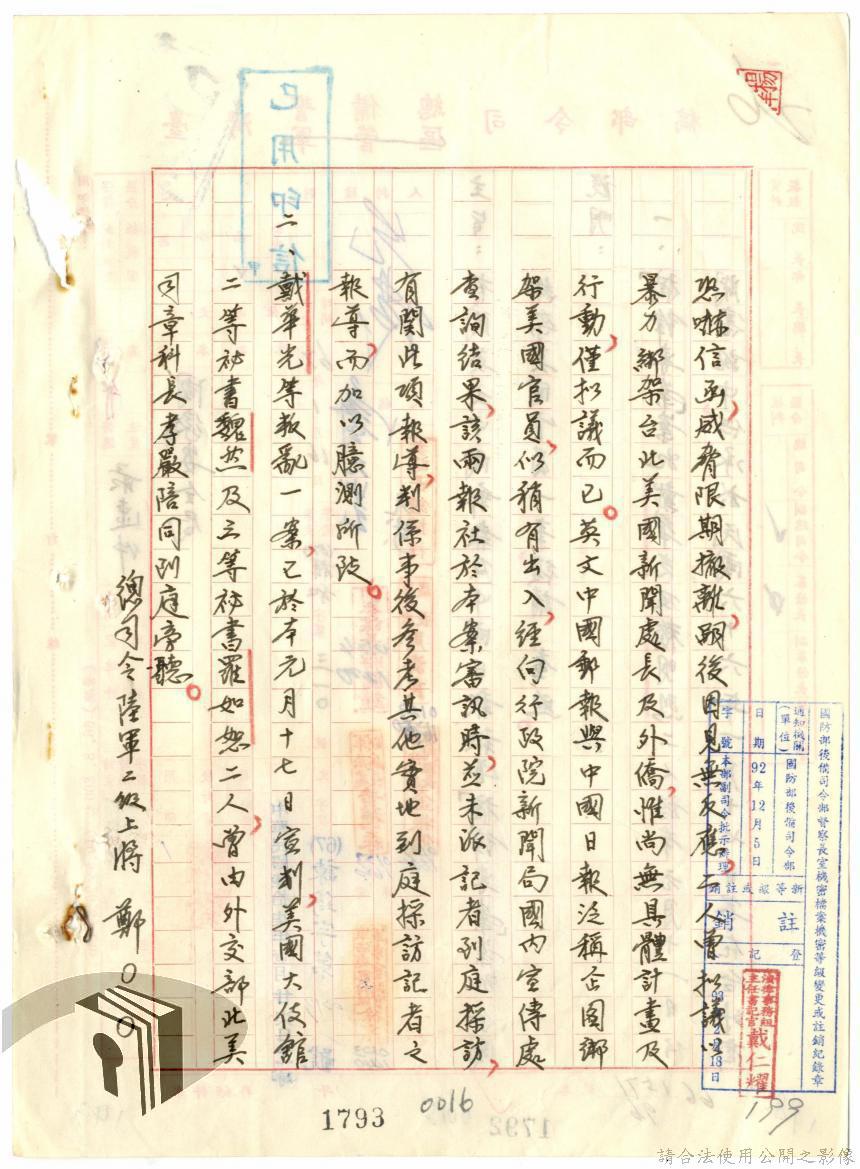 恐嚇信函,威脅限期撤離,嗣後因見無反應,二人曾擬議以
暴力綁架台北美國新聞處長及外僑,惟尚無具體計畫及
行動,僅扣議而已。英文中國郵報與中國日報泛稱企圖綁
架美國官員,似稍有出入,經向行政院新聞局國內宣傳處
查詢結果,該兩報社於本案審訊時,並未派記者到庭採訪,
有關此項報導,判係事後參考其他實地到庭採訪記者之
報導,而加以臆測所致。
二、戴華光等叛亂一案,已於本元月十七日宣判,美國大使館
二等祕書魏然及三等祕書羅如恕二人,曾由外交部北美
司章科長孝嚴陪同到庭旁聽。
總司令陸軍二級上將 鄭○○
已用印信
國防部後備司令部督察長室機密檔案機密等級變更或註銷紀錄章
通知機關(單位) 國防部後備司令部
日期 92年12月5日
字號 本部副司令批示辦理
新等級或註銷
註銷
登記
戴仁耀
1793
0016
199
請合法使用公開之影像